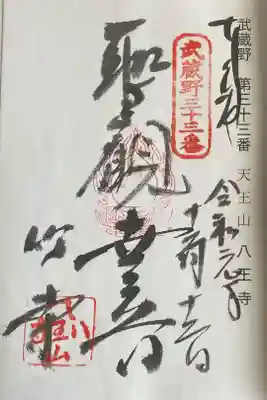 武蔵野 第三十三番 天王山 八王寺
奉拝
令和元年
十一月十三日
武蔵野三十三番
聖観世音
竹寺